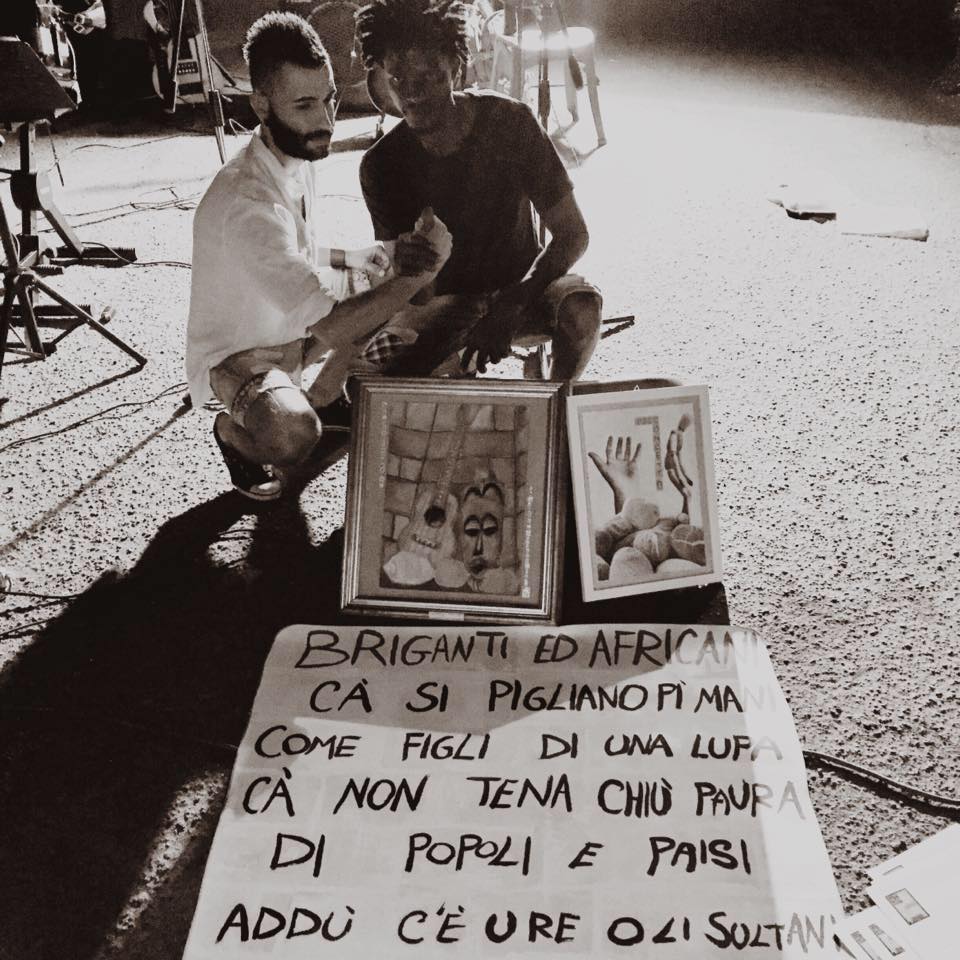 BRIGANTI ED AFRICANI
CÀ SI PIGLIANO PÌ MANI
COME FIGLI DI UNA LUPA
CÀ NON TENA CHIÙ PAURA
DI POPOLI E PAISI
ADDÙ C'È U RE O LI SULTANI